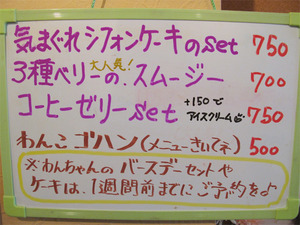 気まぐれシフォンケーキのset 750
大人気!
3種ベリーの.スムージー 700
コーヒーゼリーset +150で アイスクリームも 750
わんこゴハン(メニューきいてネ) 500
※わんちゃんの バースデーセットや
ケーキは、1週間前までにご予約を♪